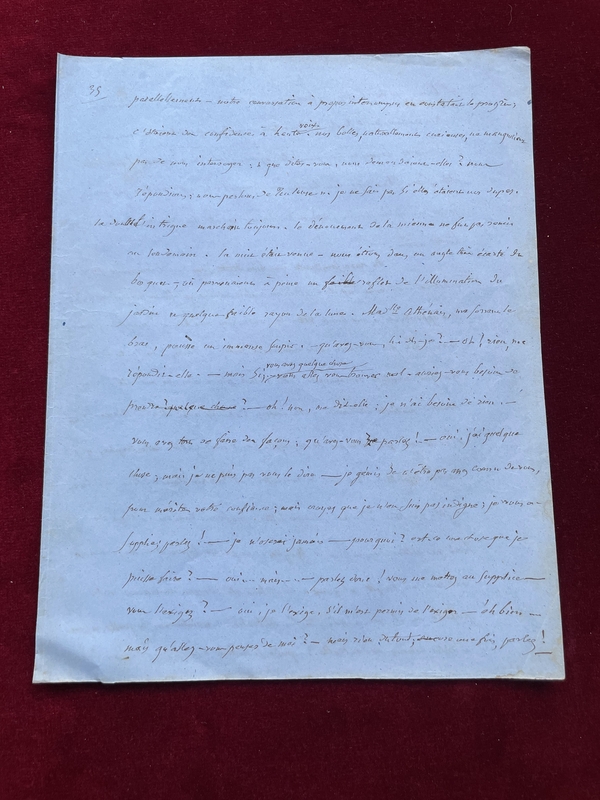 35
parallèlement — notre conversation à propos interrompus en constatait le progrès;
c'étaient des confidences à haute voix. nos belles, naturellement curieuses, ne manquaient
pas de nous interroger: que dites-vous, nous demandaient-elles? nous
répondions: nous parlons de l'histoire — je ne sais pas si elles étaient nos dupes.
la double intrigue marchait toujours. le dénouement de la mienne ne fut pas remis
au lendemain. la nuit était venue — nous étions dans un angle très écarté du
bosquet, où parvenaient à peine un faible reflet de l'illumination du
jardin et quelque faible rayon de la lune. Mad^lle Athénaïs, me serrant le
bras, poussa un immense soupir. qu'avez-vous, lui dis-je? — oh! rien, me
répondit-elle. — mais si, vous avez quelque chose vous trouvez mal — auriez-vous besoin de
prendre quelque chose? — oh! non, me dit-elle; je n'ai besoin de rien. —
vous avez tort de faire des façons; qu'avez-vous? parlez! — oui! j'ai quelque
chose; mais je ne puis pas vous le dire — je gémis de n'être pas assez connu de vous,
pour mériter votre confiance; mais croyez que je n'en suis pas indigne; je vous en
supplie, parlez! — je n'oserai jamais — pourquoi? est-ce une chose que je
puisse faire? — oui — mais — parlez donc! vous me mettez au supplice —
vous l'exigez? — oui, je l'exige, s'il m'est permis de l'exiger — eh bien —
mais qu'allez-vous penser de moi? — mais rien du tout, encore une fois, parlez!